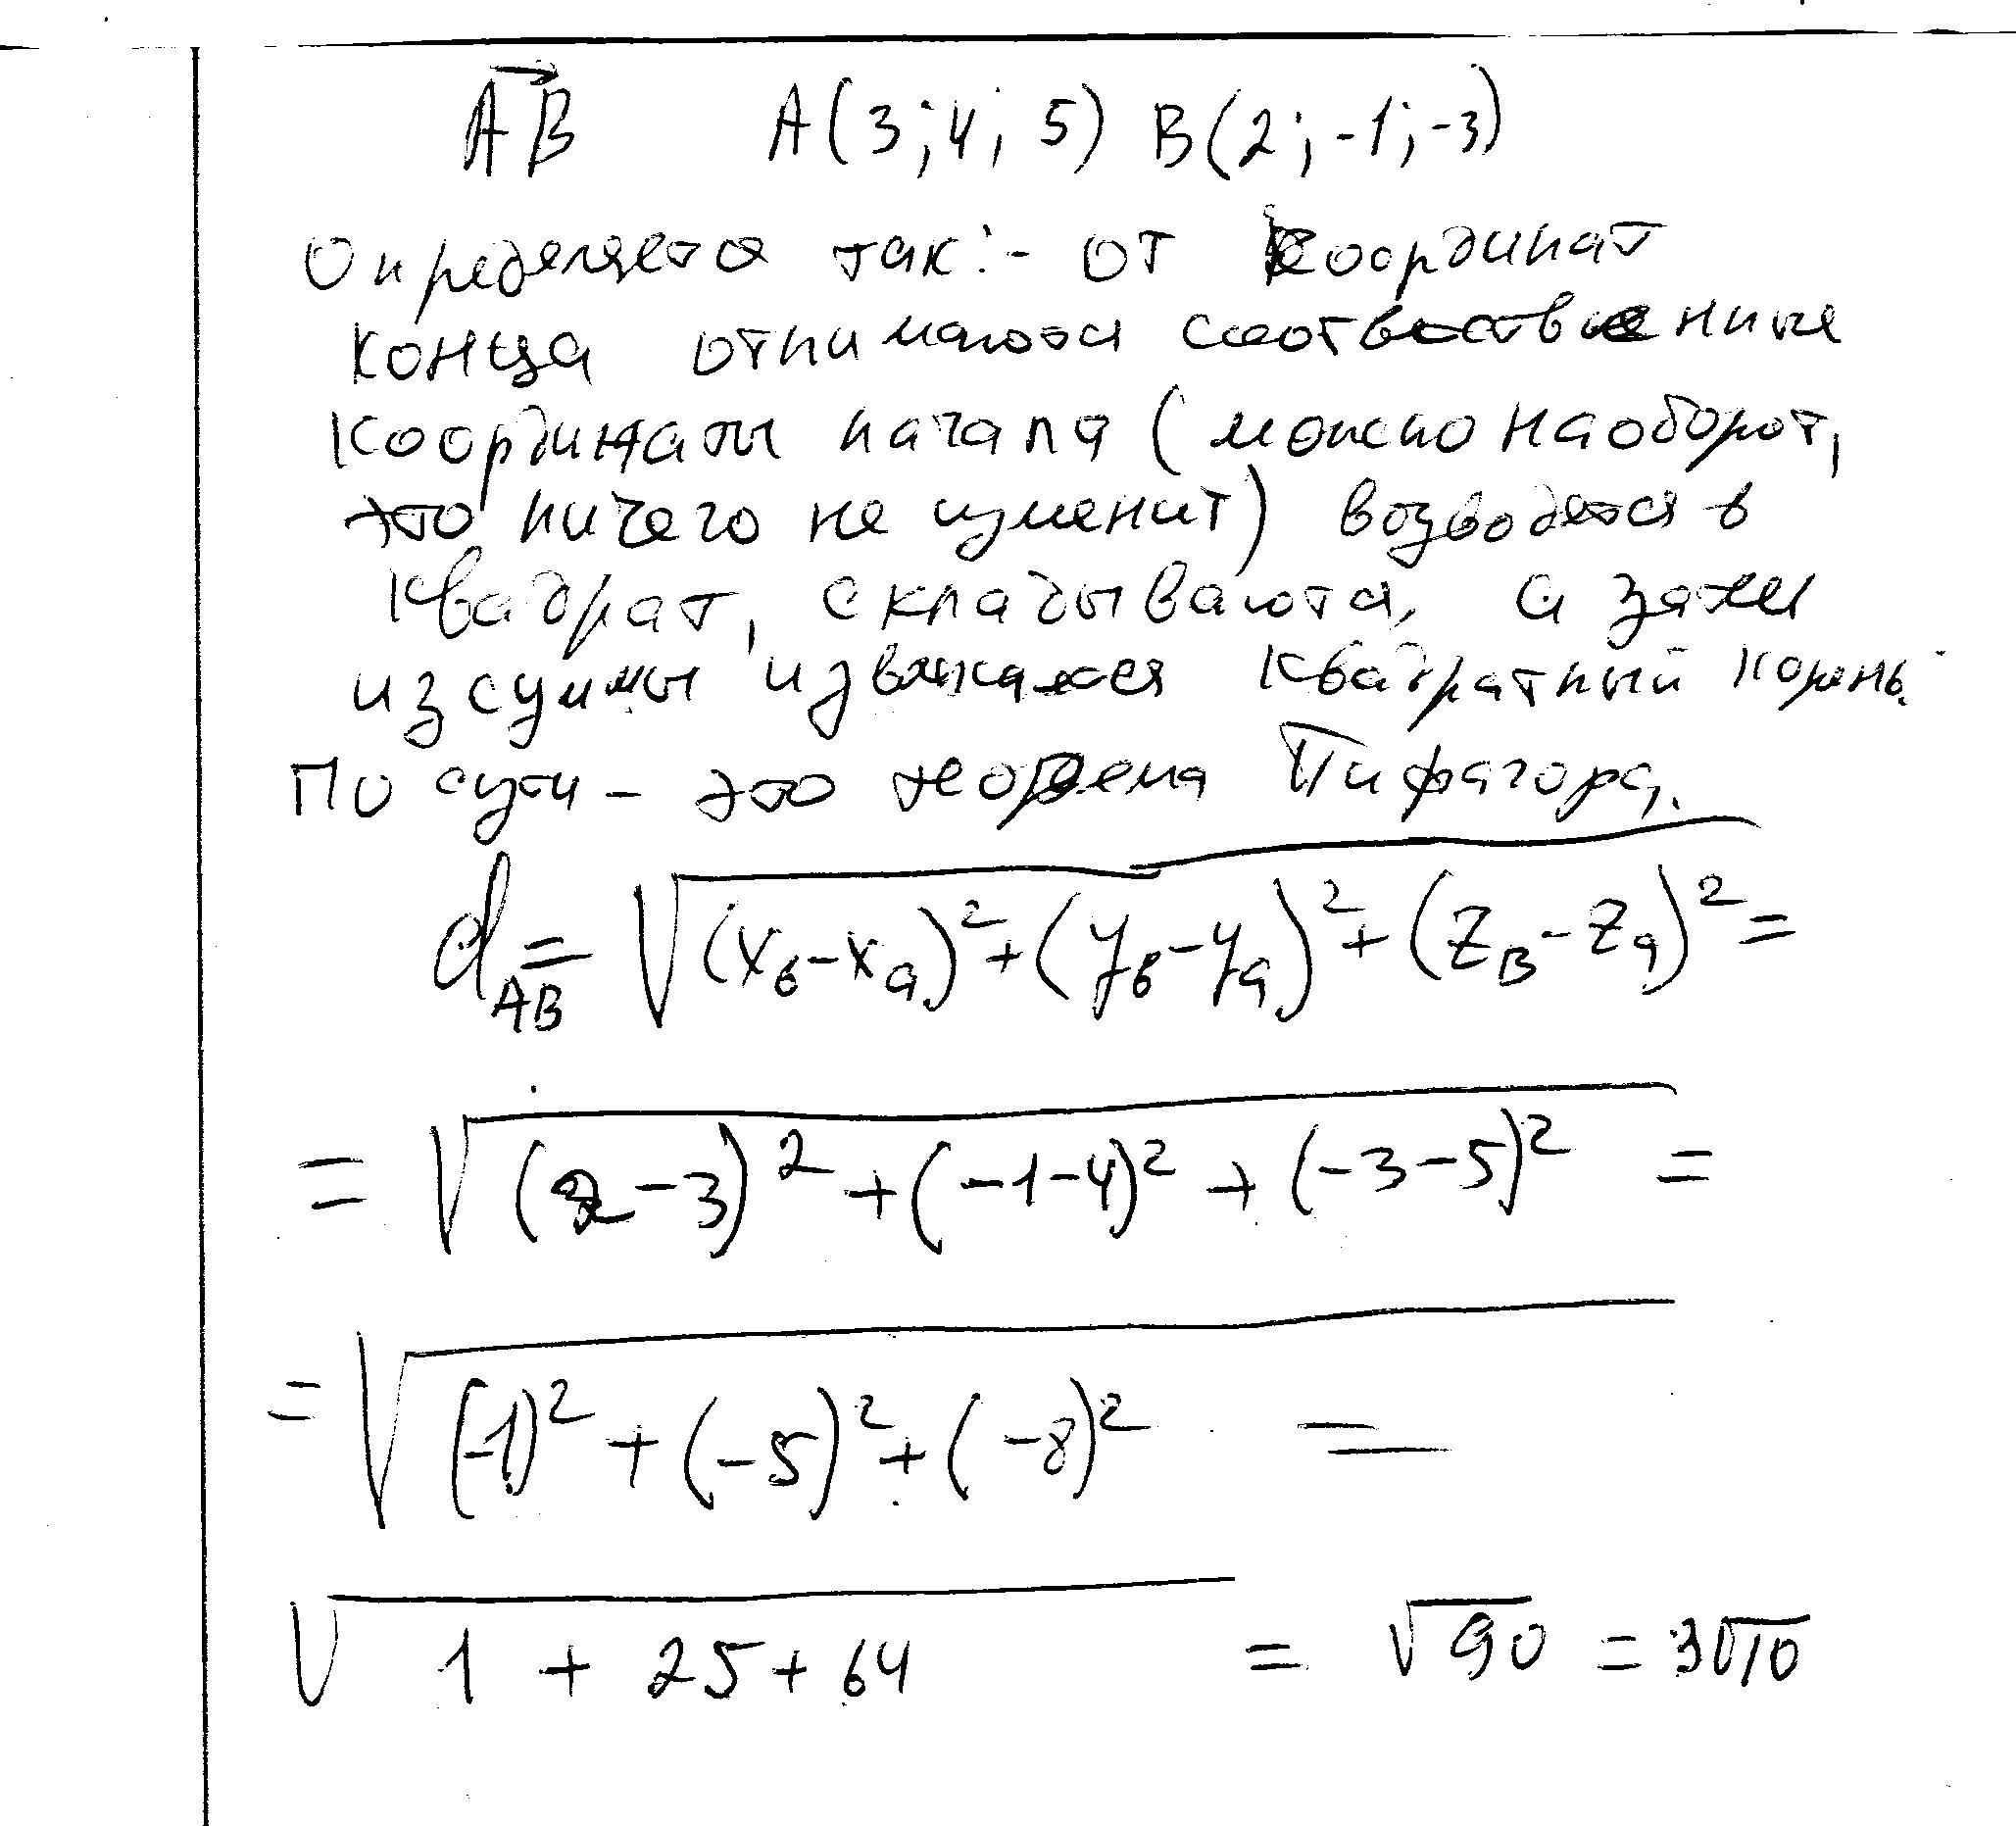 AB A(3; 4; 5) B(2; -1; -3)
Определяется так: - от координат
конца отнимаются соответственные
координаты начала (можно наоборот,
это ничего не изменит) возводятся в
квадрат, складываются, а затем
из суммы извлекается квадратный корень.
По сути - это теорема Пифагора.
d_AB = √((x_b - x_a)² + (y_b - y_a)² + (z_B - z_a)²) =
= √((2-3)² + (-1-4)² + (-3-5)²) =
= √((-1)² + (-5)² + (-8)²) =
√(1 + 25 + 64) = √90 = 3√10